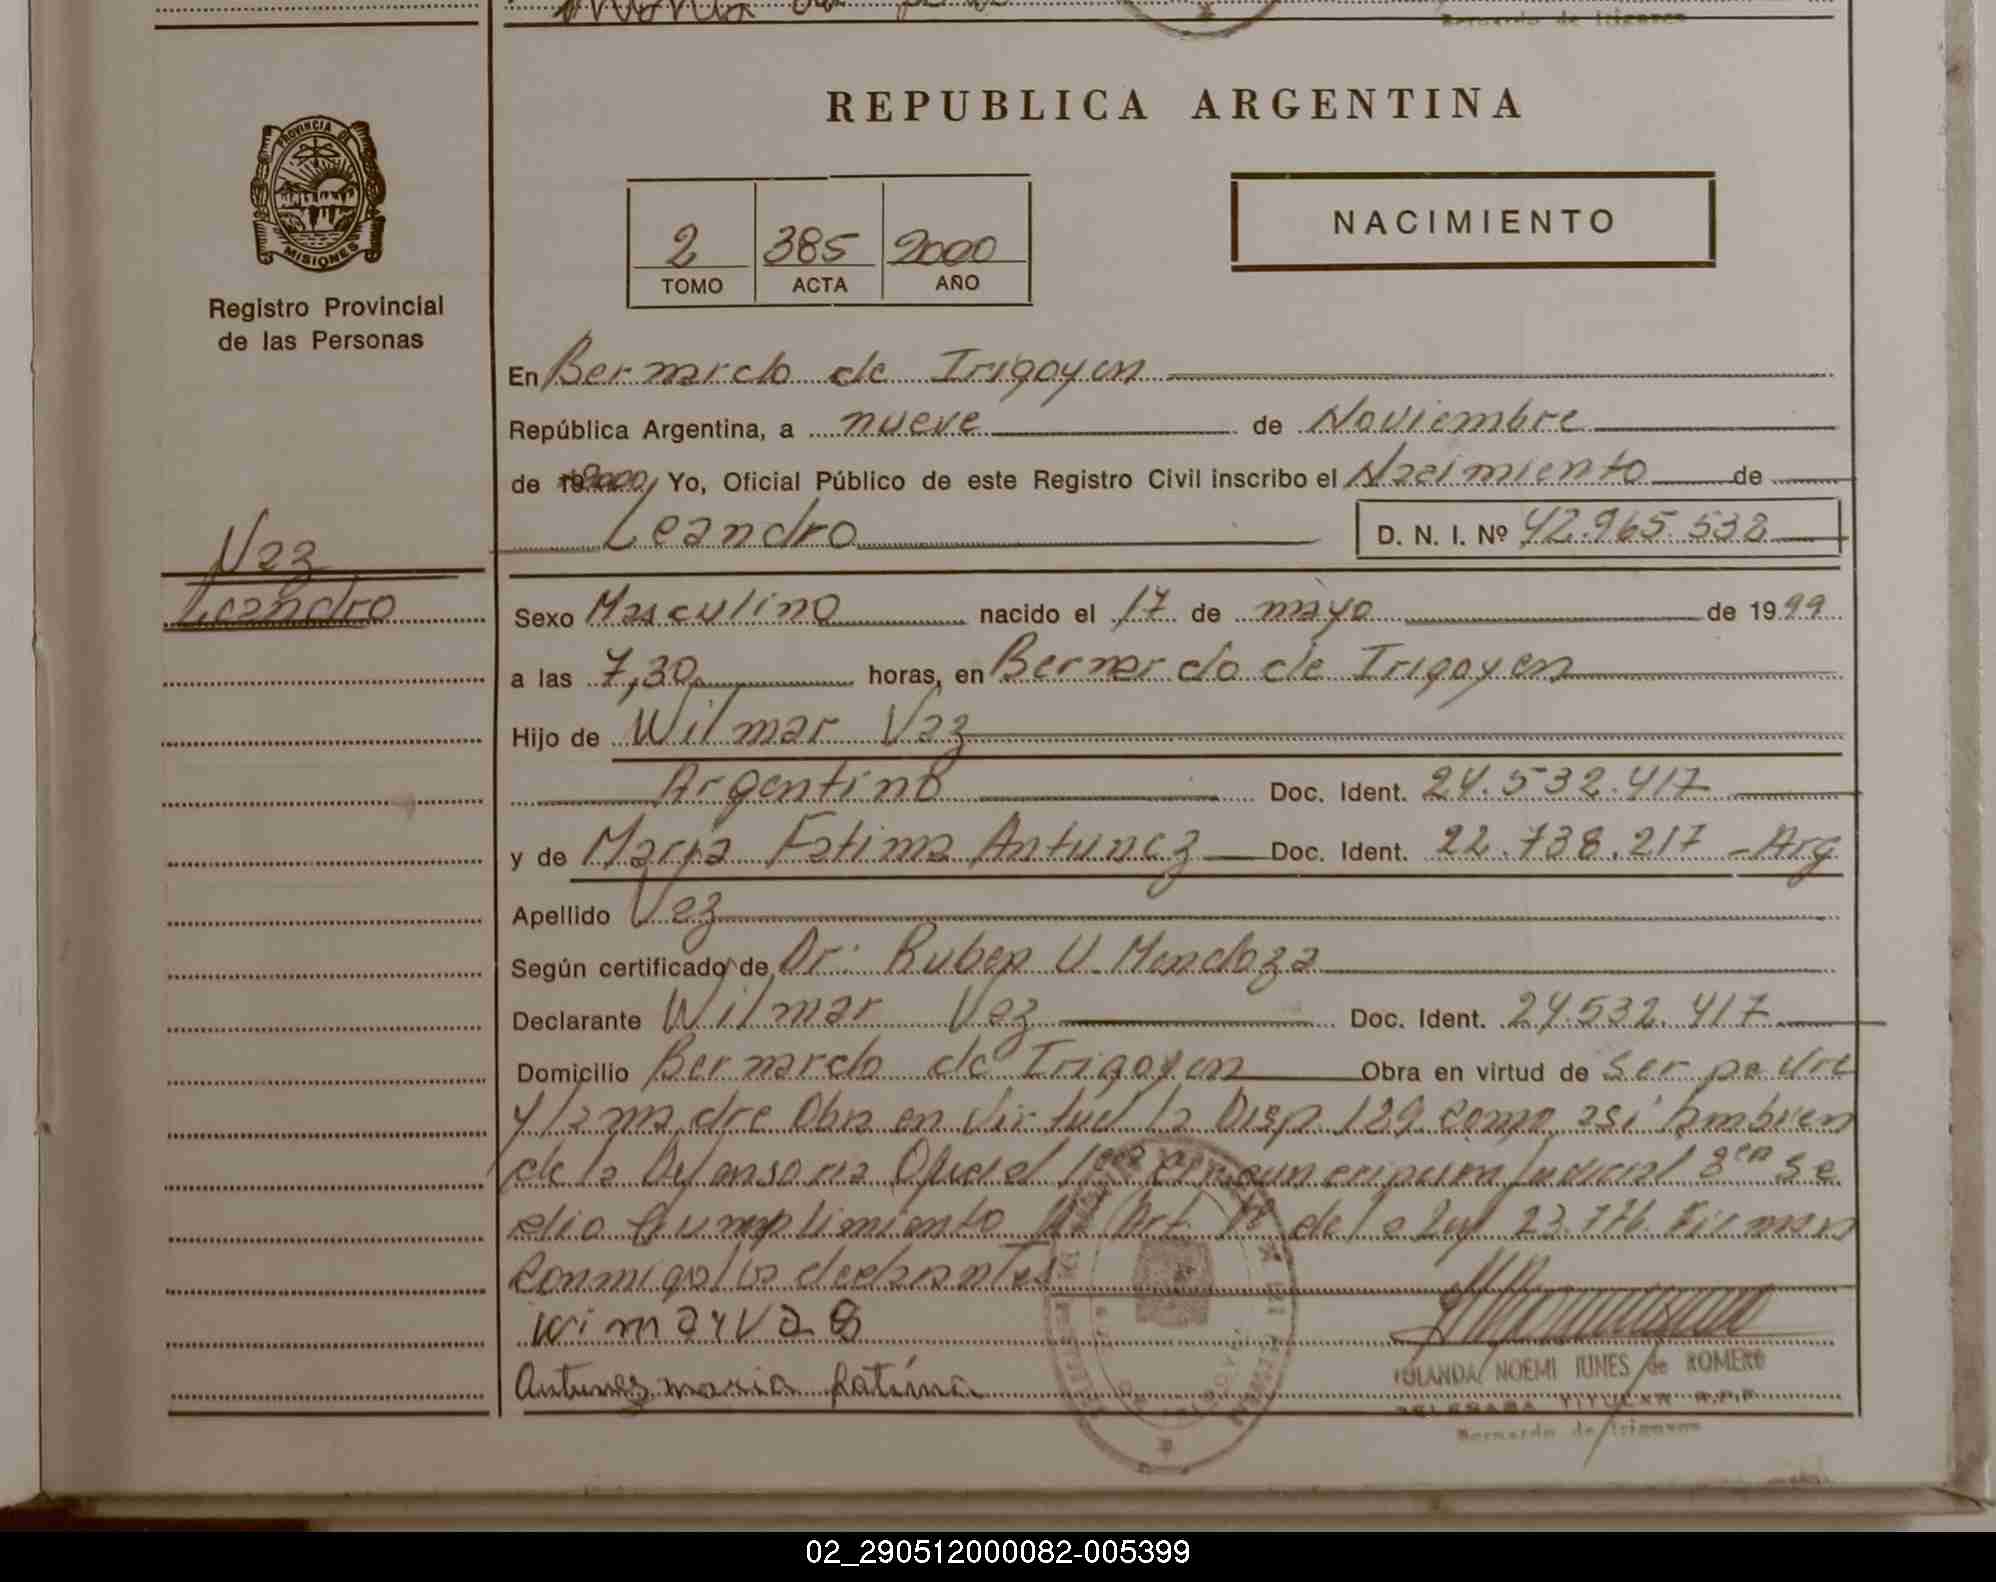 REPUBLICA ARGENTINA
PROVINCIA DE
MISIONES
Registro Provincial
de las Personas
2 385 2000
TOMO ACTA AÑO
NACIMIENTO
En Bernardo de Irigoyen
República Argentina, a nueve de Noviembre
de 2000 Yo, Oficial Público de este Registro Civil inscribo el Nacimiento de
Leandro D. N. I. Nº 42.965.532
Vaz
Leandro
Sexo Masculino nacido el 17 de mayo de 1999
a las 7,30 horas, en Bernardo de Irigoyen
Hijo de Wilmar Vaz
Argentino Doc. Ident. 24.532.417
y de Maria Fatima Antunez Doc. Ident. 22.738.217 - Arg
Apellido Vaz
Según certificado de Dr: Ruben U. Mendoza
Declarante Wilmar Vaz Doc. Ident. 24.532.417
Domicilio Bernardo de Irigoyen Obra en virtud de ser padre
y la madre Obra en Virtud la Disp. 129 como asi tambien
de la Defensoria Oficial 1era Circunscripcion Judicial 3era se
dio cumplimiento Art. de la Ley 23.776. Firman
conmigo los declarantes
wimarvas
Antunez maria fatima
YOLANDA NOEMI IUNES de ROMERO
DELEGADA TITULAR R.P.P.
Bernardo de Irigoyen
02_290512000082-005399